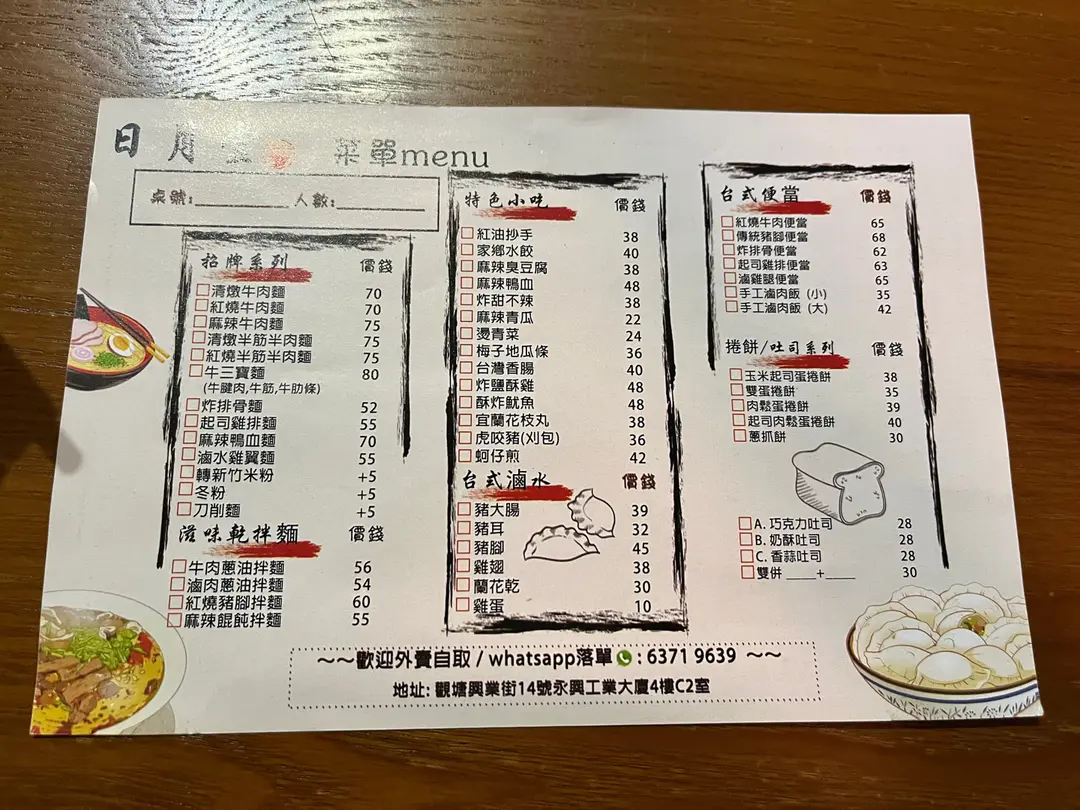 日月
菜單menu
桌號:________ 人數:________
招牌系列 價錢
清燉牛肉麵 70
紅燒牛肉麵 70
麻辣牛肉麵 75
清燉半筋半肉麵 75
紅燒半筋半肉麵 75
牛三寶麵 80
(牛腱肉,牛筋,牛肋條)
炸排骨麵 52
起司雞排麵 55
麻辣鴨血麵 70
滷水雞翼麵 55
轉新竹米粉 +5
冬粉 +5
刀削麵 +5
滋味乾拌麵 價錢
牛肉蔥油拌麵 56
滷肉蔥油拌麵 54
紅燒豬腳拌麵 60
麻辣餛飩拌麵 55
特色小吃 價錢
紅油抄手 38
家鄉水餃 40
麻辣臭豆腐 38
麻辣鴨血 48
炸甜不辣 38
麻辣青瓜 22
燙青菜 24
梅子地瓜條 36
台灣香腸 40
炸鹽酥雞 48
酥炸魷魚 48
宜蘭花枝丸 38
虎咬豬(刈包) 36
蚵仔煎 42
台式滷水 價錢
豬大腸 39
豬耳 32
豬腳 45
雞翅 38
蘭花乾 30
雞蛋 10
台式便當 價錢
紅燒牛肉便當 65
傳統豬腳便當 68
炸排骨便當 62
起司雞排便當 63
滷雞腿便當 65
手工滷肉飯 (小) 35
手工滷肉飯 (大) 42
捲餅/吐司系列 價錢
玉米起司蛋捲餅 38
雙蛋捲餅 35
肉鬆蛋捲餅 39
起司肉鬆蛋捲餅 40
蔥抓餅 30
A. 巧克力吐司 28
B. 奶酥吐司 28
C. 香蒜吐司 28
雙併 ____+____ 30
~~歡迎外賣自取 / whatsapp落單 : 6371 9639 ~~
地址: 觀塘興業街14號永興工業大廈4樓C2室